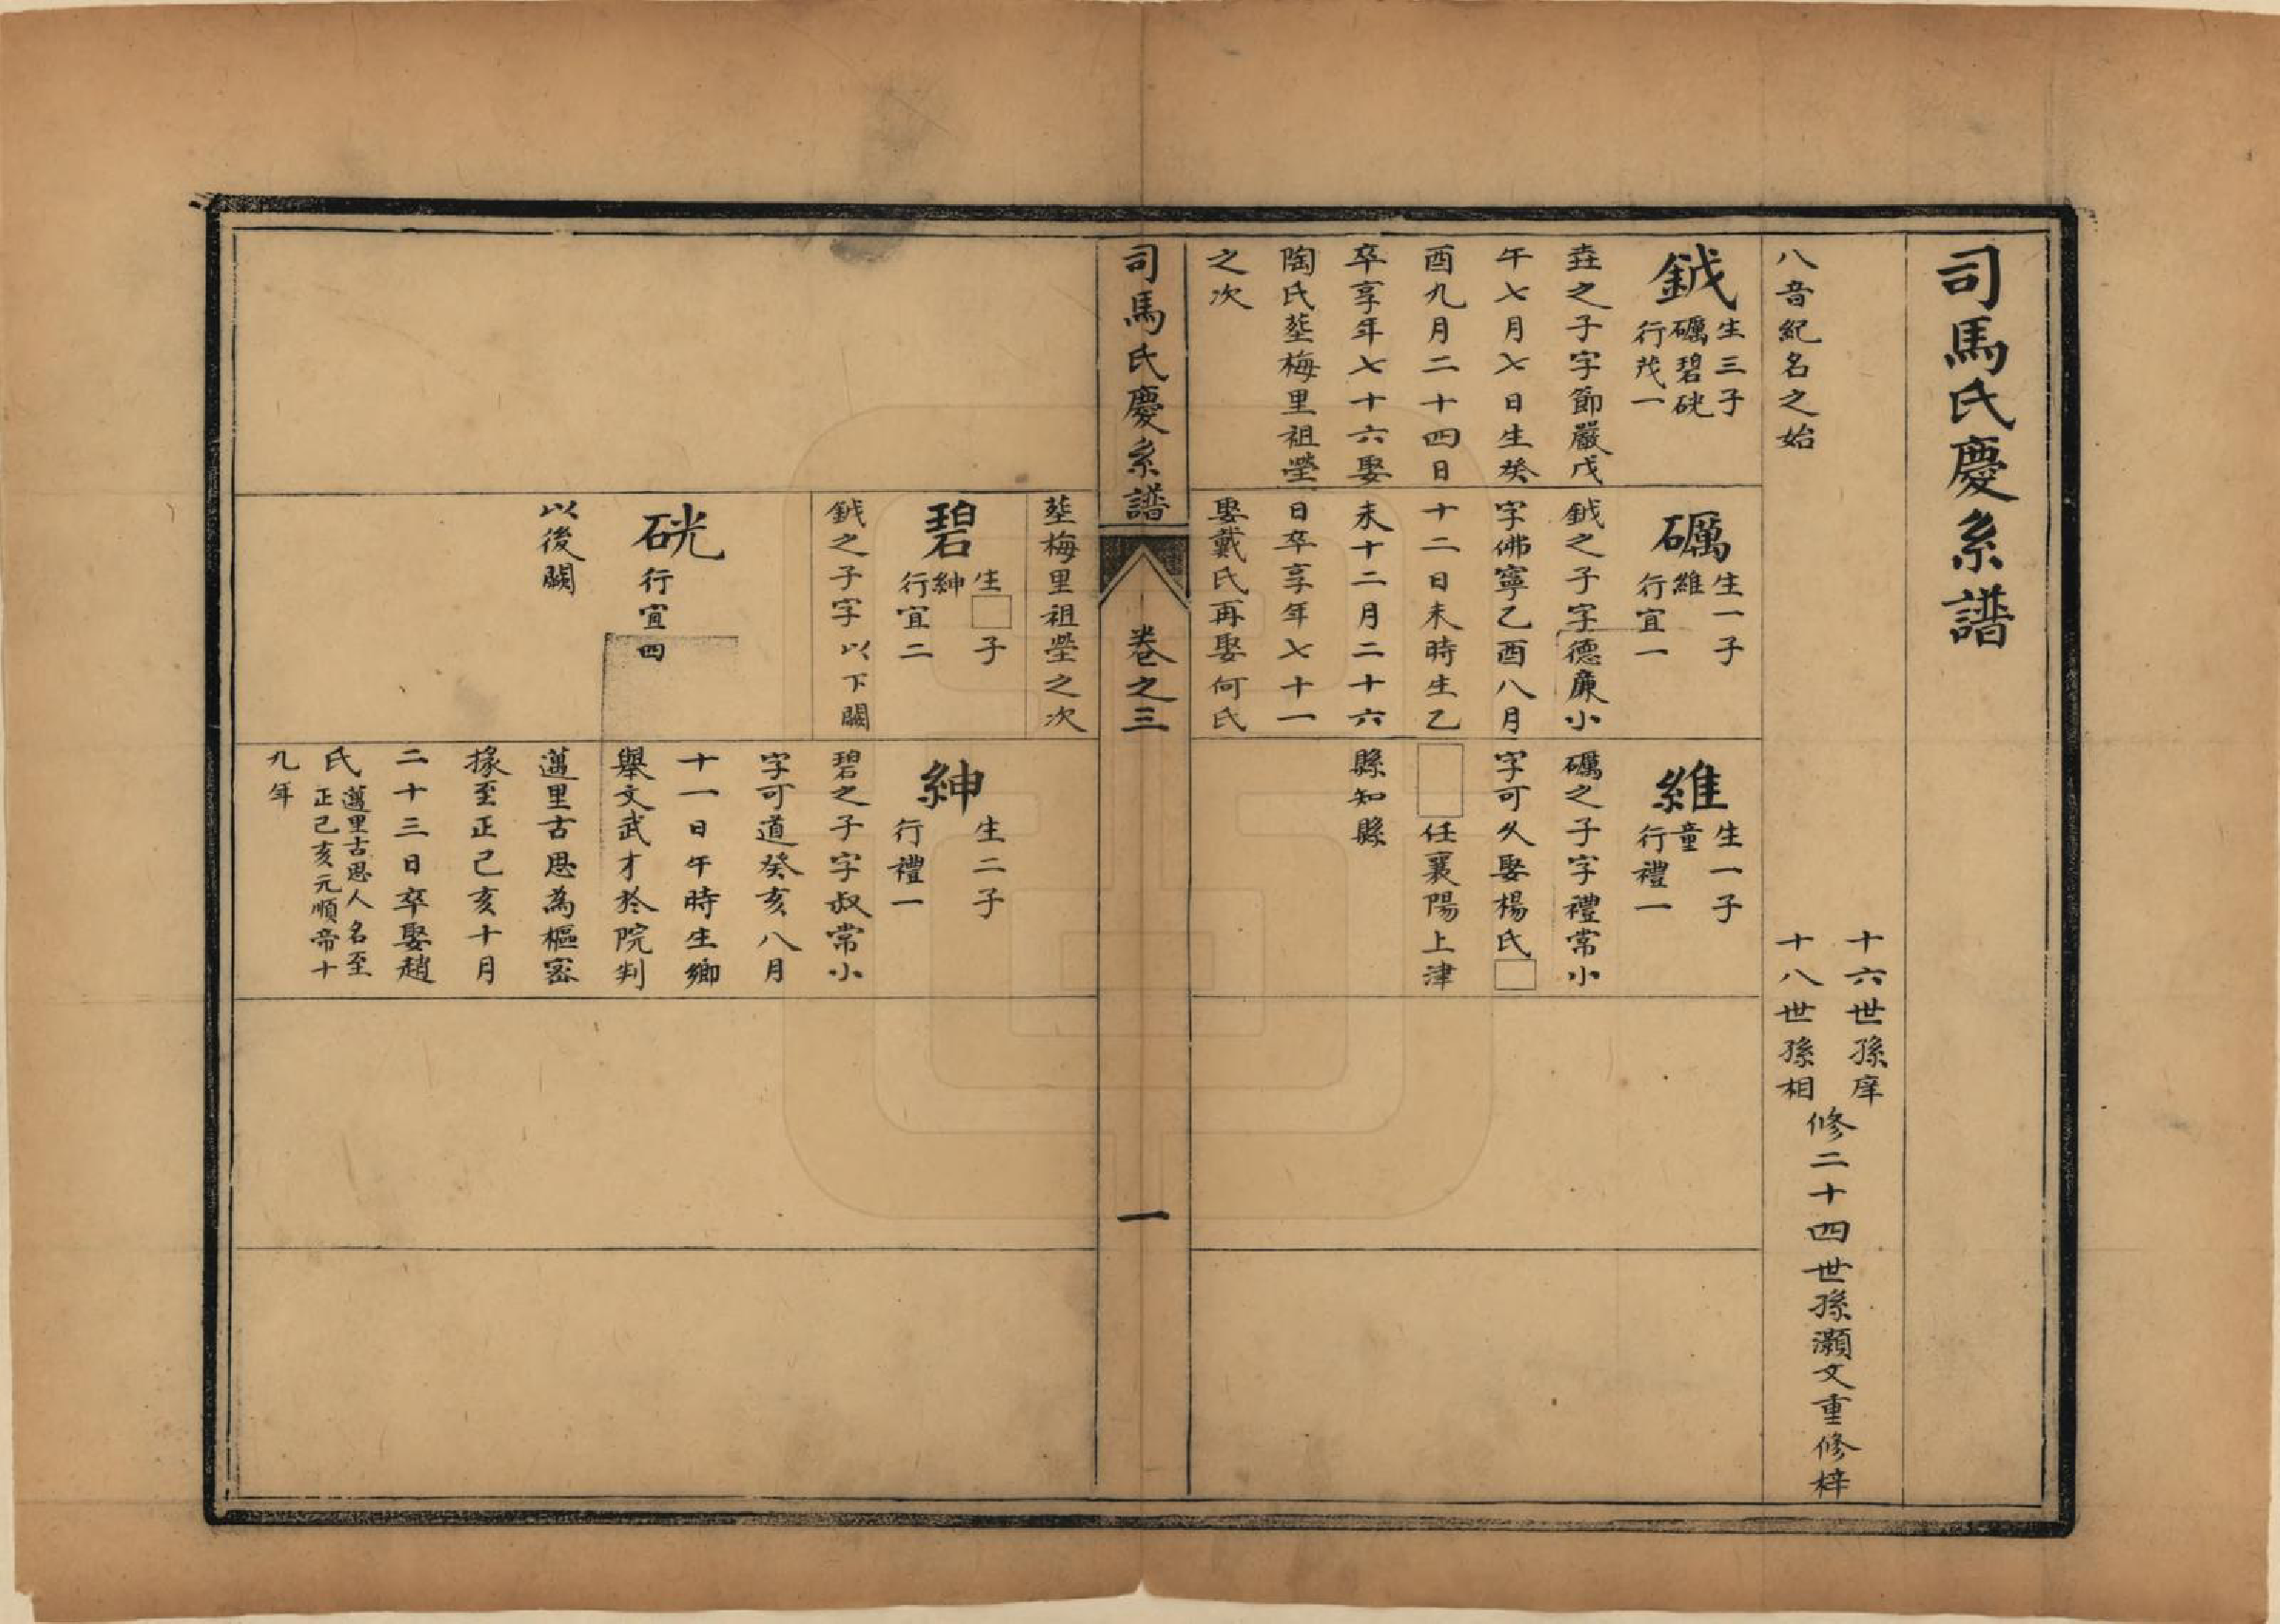 司馬氏慶系譜
十六世孫庠
十八世孫相
修二十四世孫灝文重修梓
八音紀名之始
鉞
生三子
礪碧硄
行茂一
垚之子字節嚴戊
午七月七日生癸
酉九月二十四日
卒享年七十六娶
陶氏塟梅里祖塋
之次
礪
生一子
維
行宜一
鉞之子字德廉小
字佛寧乙酉八月
十二日未時生乙
未十二月二十六
日卒享年七十一
娶戴氏再娶何氏
維
生一子
童
行禮一
礪之子字禮常小
字可久娶楊氏□
□任襄陽上津
縣知縣
司馬氏慶系譜
卷之三
一
塟梅里祖塋之次
碧
生□子
紳
行宜二
鉞之子字以下闕
硄
行宜四
以後闕
紳
生二子
行禮一
碧之子字叔常小
字可道癸亥八月
十一日午時生鄉
舉文武才於院判
邁里古思為樞密
掾至正己亥十月
二十三日卒娶趙
氏
邁里古思人名至
正己亥元順帝十
九年